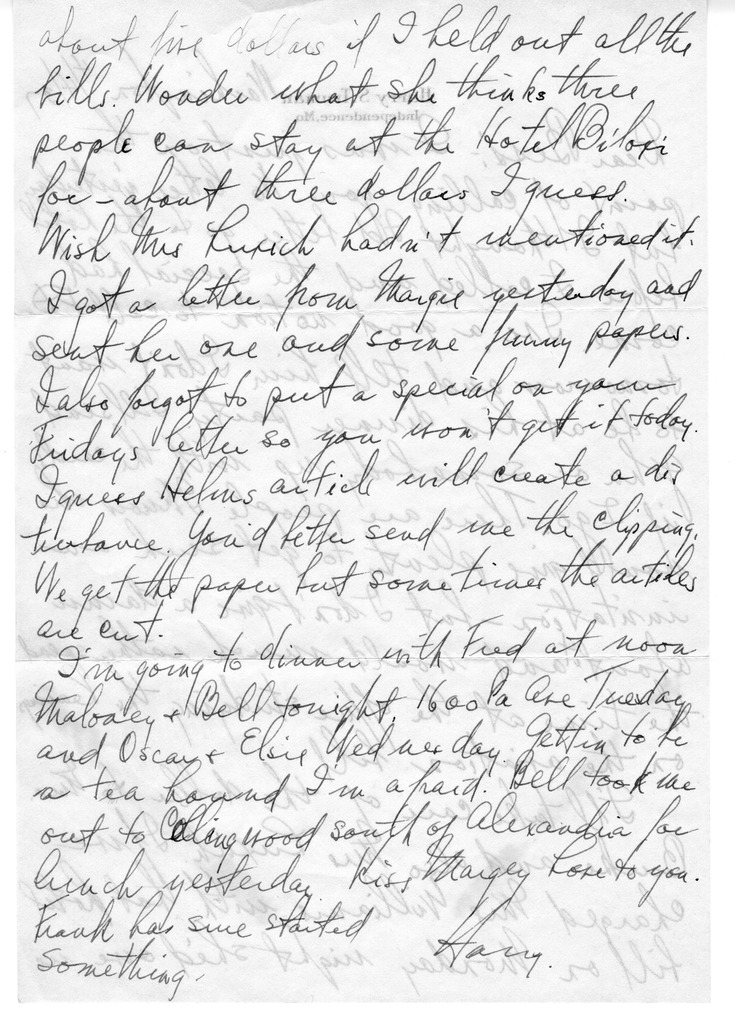 about five dollars if I held out all the
bills. Wonder what she thinks three
people can stay at the Hotel Biloxi
for - about three dollars I guess.
Wish Mrs hadn't mentioned it.
I got a letter from Margie yesterday and
sent her one and some funny papers.
I also forgot to put a special on your
Fridays letter so you won't get it today.
I guess Helms article will create a dis
turbance. You'd better send me the clipping.
We get the paper but sometimes the articles
are cut.
I'm going to dinner with Fred at noon
Maloney & Bell tonight, 1600 Pa Ave Tuesday
and Oscar & Elsie Wednesday. Gettin to be
a tea hound I'm afraid. Bell took me
out to Collingwood south of Alexandria for
lunch yesterday. Kiss Margey Love to you.
Frank has sure started Harry.
something.
Harry S. Truman
Independence, Mo.